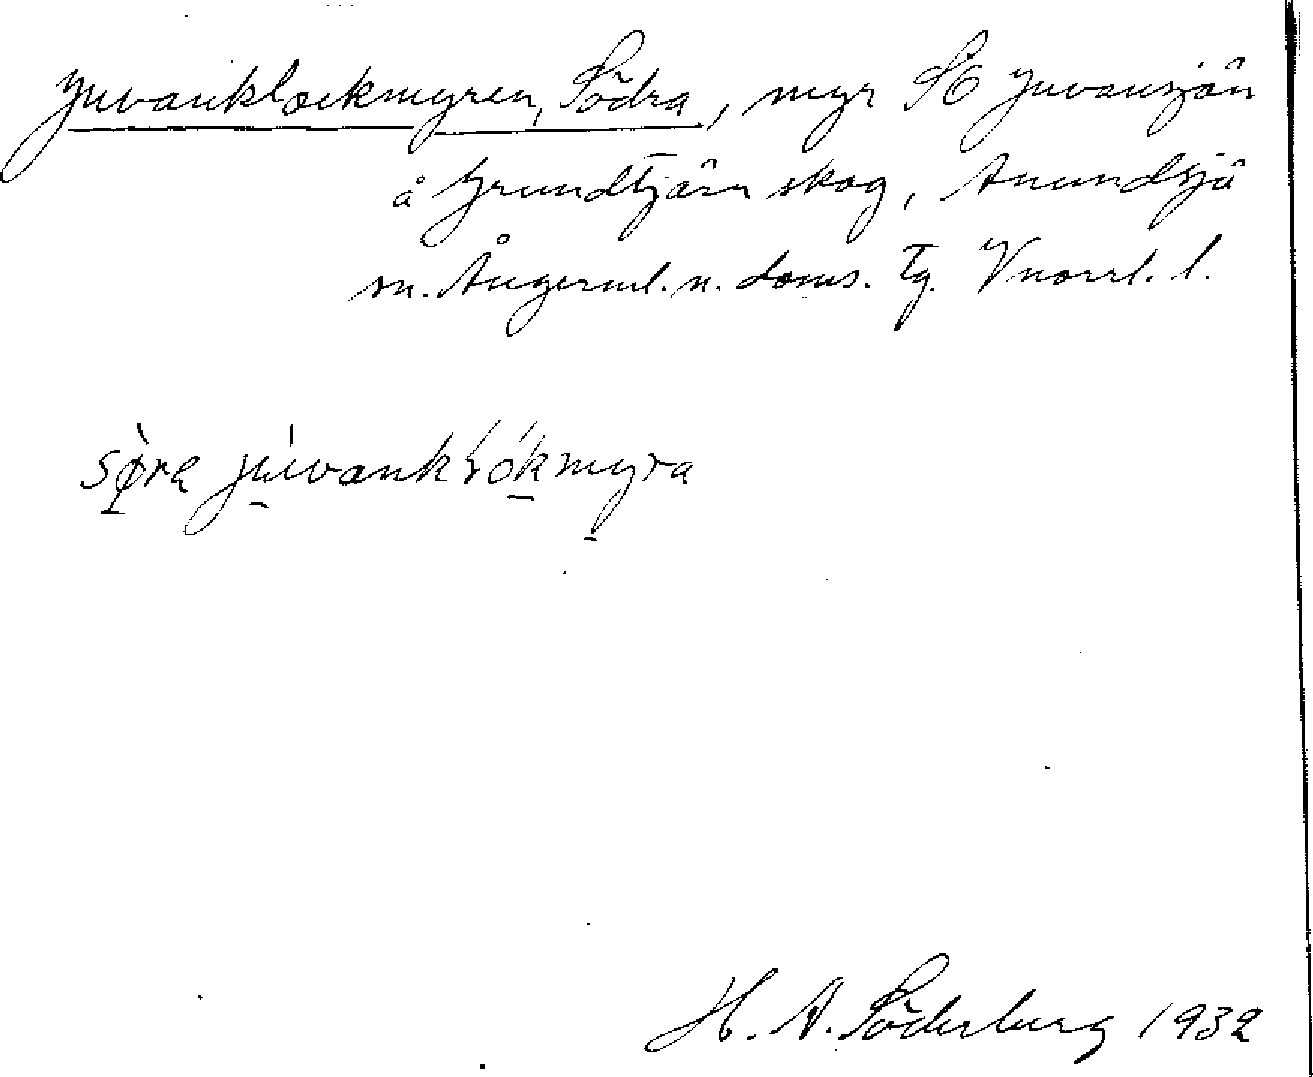 Juvanklockmyren, Södra, myr SÖ Juvansjön
å Grundtjärn skog, Anundsjö
sn. Ångerml. n. doms. Tg. Vnorrl. l.
H. A. Söderberg 1932